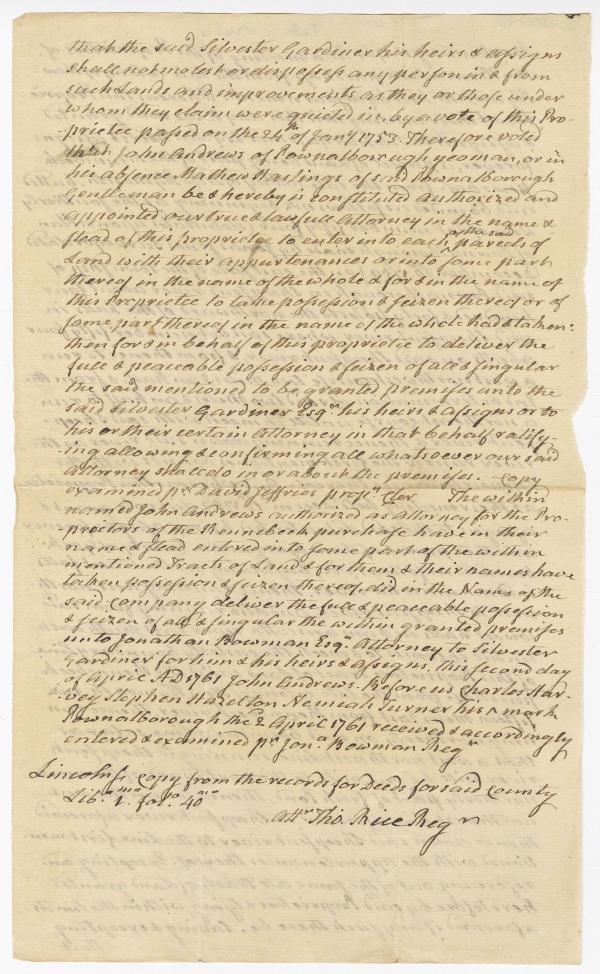 that the said Silvester Gardiner his heirs & assigns
shall not molest or dispossess any person in & from
such Lands and improvements as they or those under
whom they claim were quieted in by a vote of this Pro-
-prietee passed on the 24th of Jany 1753. Therefore voted
that John Andrews of Pownalborough yeoman, or in
his absence Mathew Hastings of said Pownalborough
Gentleman be & hereby is constituted authorized and
appointed our true & lawfull Attorney in the name &
stead of this proprietee to enter into each of the said parcels of
Land with their appurtenances or into some part
thereof in the name of the whole & for & in the name of
this Proprietee to take possession & seizen thereof or of
some part thereof in the name of the whole had & taken:
then for & in behalf of this proprietee to deliver the
full & peaceable possession & seizen of all & singular
the said mentioned to be granted premises unto the
said Silvester Gardiner Esqr. his heirs & assigns or to
his or their certain Attorney in that behalf ratify-
-ing allowing & confirming all whatsoever our said
Attorney shall do in or about the premises. Copy
examined pr. David Jeffries propr. Cler The within
named John Andrews authorized as Attorney for the Pro-
-prietors of the Kennebeck purchase have in their
name & stead entered into some part of the within
mentioned Tracts of Land & for them & their names have
taken possession & seizen thereof, did in the Name of the
said Company deliver the full & peaceable possession
& seizen of all & singular the within granted premises
unto Jonathan Bowman Esqr. Attorney to Silvester
Gardiner for him & his heirs & assigns, this second day
of April AD 1761 John Andrews. Before us Charles Har-
-vey Stephen Hazelton Nemiah Turner his ^ mark
Pownalborough the 2 April 1761 received & accordingly
entered & examined pr. Jona. Bowman Regr.
Lincoln ss. Copy from the records for Deeds for said County
Lib. 1. fol. 40
Attr. Tho. Rice Regr